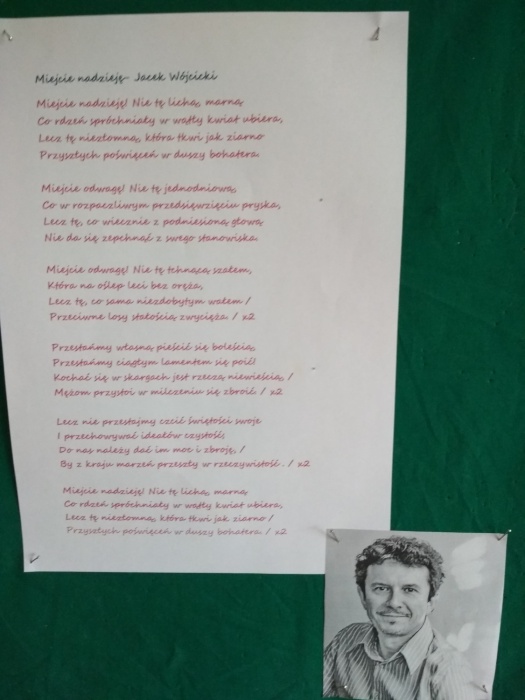 Miejcie nadzieję- Jacek Wójcicki
Miejcie nadzieję! Nie tę lichą, marną
Co rdzeń spróchniały w wątły kwiat ubiera,
Lecz tę niezłomną, która tkwi jak ziarno
Przyszłych poświęceń w duszy bohatera.
Miejcie odwagę! Nie tę jednodniową,
Co w rozpaczliwym przedsięwzięciu pryska,
Lecz tę, co wiecznie z podniesioną głową
Nie da się zepchnąć z swego stanowiska.
Miejcie odwagę! Nie tę tchnącą szałem,
Która na oślep leci bez oręża,
Lecz tę, co sama niezdobytym wałem /
Przeciwne losy stałością zwycięża. / x2
Przestańmy własną pieścić się boleścią,
Przestańmy ciągłym lamentem się poić!
Kochać się w skargach jest rzeczą niewieścią, /
Mężom przystoi w milczeniu się zbroić. / x2
Lecz nie przestajmy czcić świętości swoje
I przechowywać ideałów czystość;
Do nas należy dać im moc i zbroję, /
By z kraju marzeń przeszły w rzeczywistość. / x2
Miejcie nadzieję! Nie tę lichą, marną
Co rdzeń spróchniały w wątły kwiat ubiera,
Lecz tę niezłomną, która tkwi jak ziarno /
Przyszłych poświęceń w duszy bohatera / x2